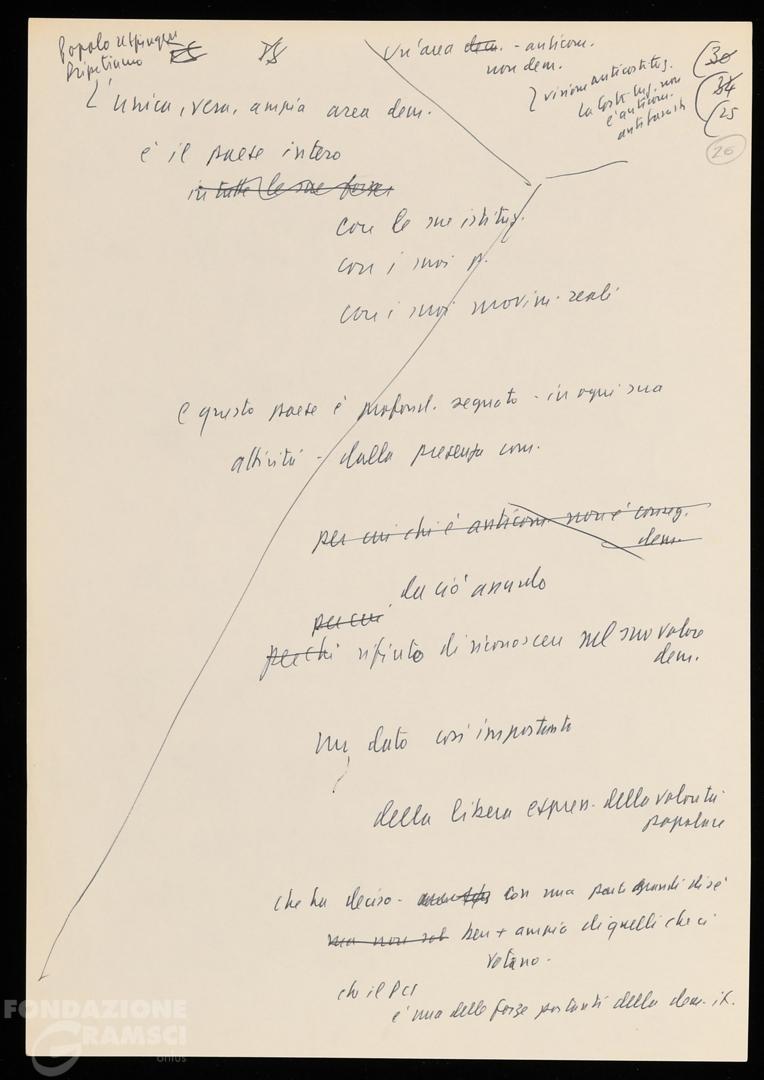 Popolo respingere
Ripetiamo
Un'area dem. - anticom.
non dem.
visione anticostituz.
la Costituz. non
è anticom.
antifascista
30
34
25
26
L'unica, vera, ampia area dem.
è il paese intero
in tutte le sue forze
con le sue istituz.
con i suoi p.
con i suoi movim. reali
e questo paese è profond. segnato - in ogni sua
attività - dalla presenza com.
per cui chi è anticom. non è conseg.
dem.
da ciò assurdo
per cui
perchi rifiuto di riconoscere nel suo valore
dem.
un dato così importante
della libera espres. della volontà
popolare
che ha deciso - con una parte grandi di sé
ma non sol ben + ampia di quelli che ci
votano -
che il PCI
è una delle forze portanti della dem. it.
FONDAZIONE
GRAMSCI
onlus